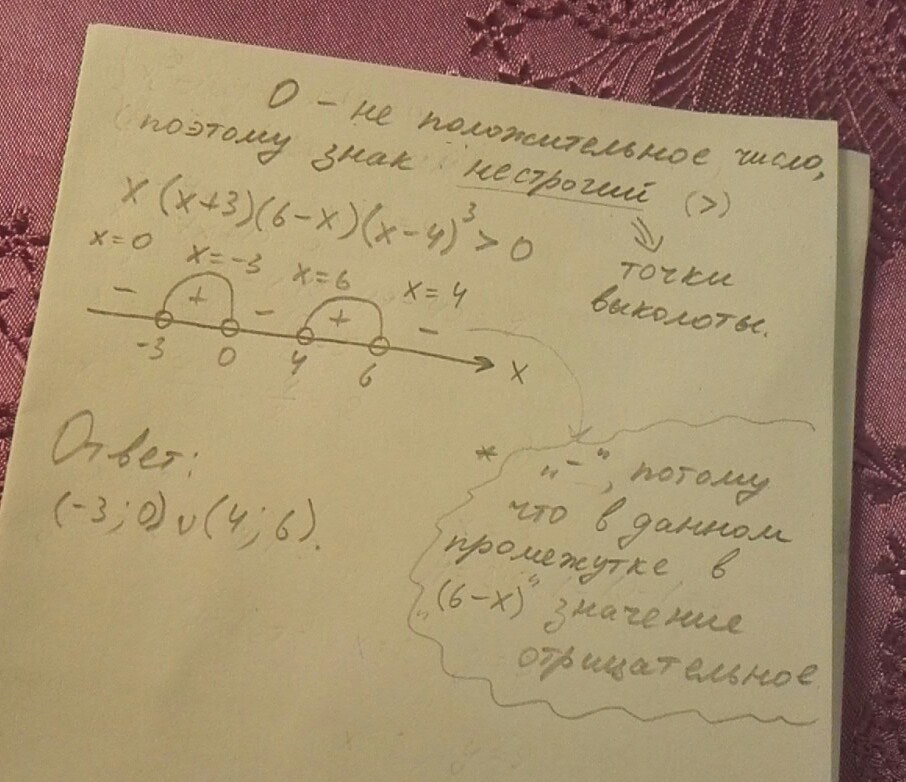 0 - не положительное число,
поэтому знак нестрогий (>)
x (x+3)(6-x)(x-4)³ > 0
точки
выколоты.
x=0 x=-3 x=6 x=4
- + - + -
-3 0 4 6 x
Ответ:
(-3; 0) ∪ (4; 6).
* „-", потому
что в данном
промежутке в
„(6-x)" значение
отрицательное